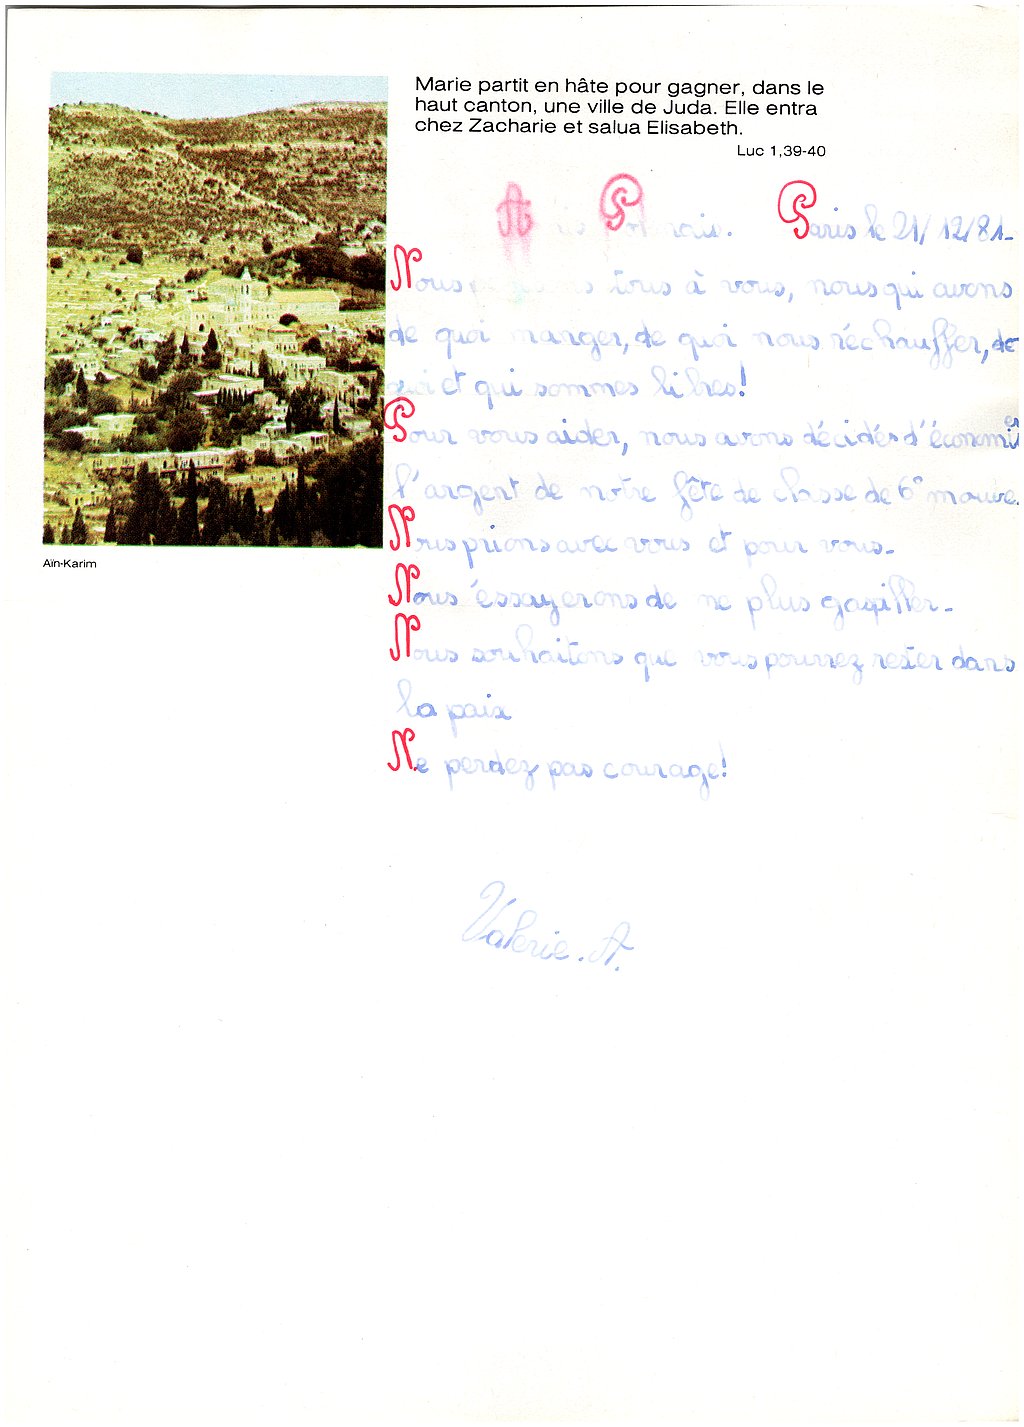 Marie partit en hâte pour gagner, dans le
haut canton, une ville de Juda. Elle entra
chez Zacharie et salua Elisabeth.
Luc 1,39-40
Amis Polonais. Paris le 21/12/81_
Nous pensons tous à vous, nous qui avons
de quoi manger, de quoi nous réchauffer, de
quoi et qui sommes libres!
Pour vous aider, nous avons décidés d'économiser
l'argent de notre fête de classe de 6e mauve.
Nous prions avec vous et pour vous_
Nous éssayerons de ne plus gaspiller_
Nous souhaitons que vous pourrez rester dans
la paix
Ne perdez pas courage!
Valérie.A.
Aïn-Karim